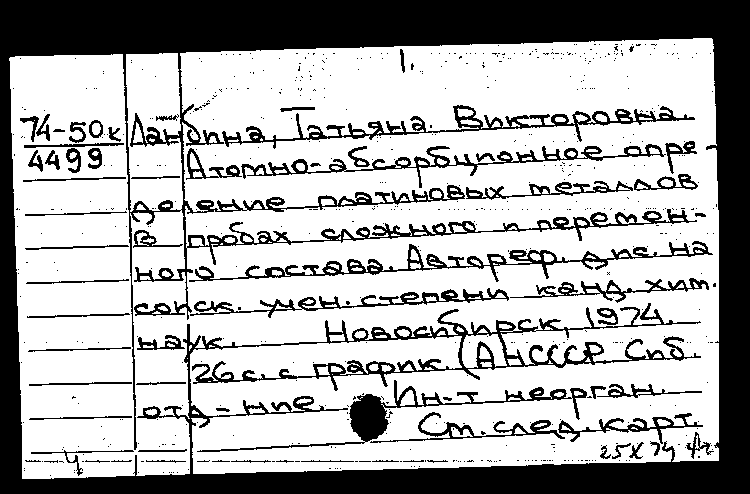 1.
74-50к Ланбина, Татьяна Викторовна.
4499 Атомно-абсорбционное опре-
деление платиновых металлов
в пробах сложного и перемен-
ного состава. Автореф. дис. на
соиск. учен. степени канд. хим.
наук. Новосибирск, 1974.
26 с. с график. (АН СССР Сиб.
отд-ние. Ин-т неорган.
Ст. след. карт.
25 X 74
ч